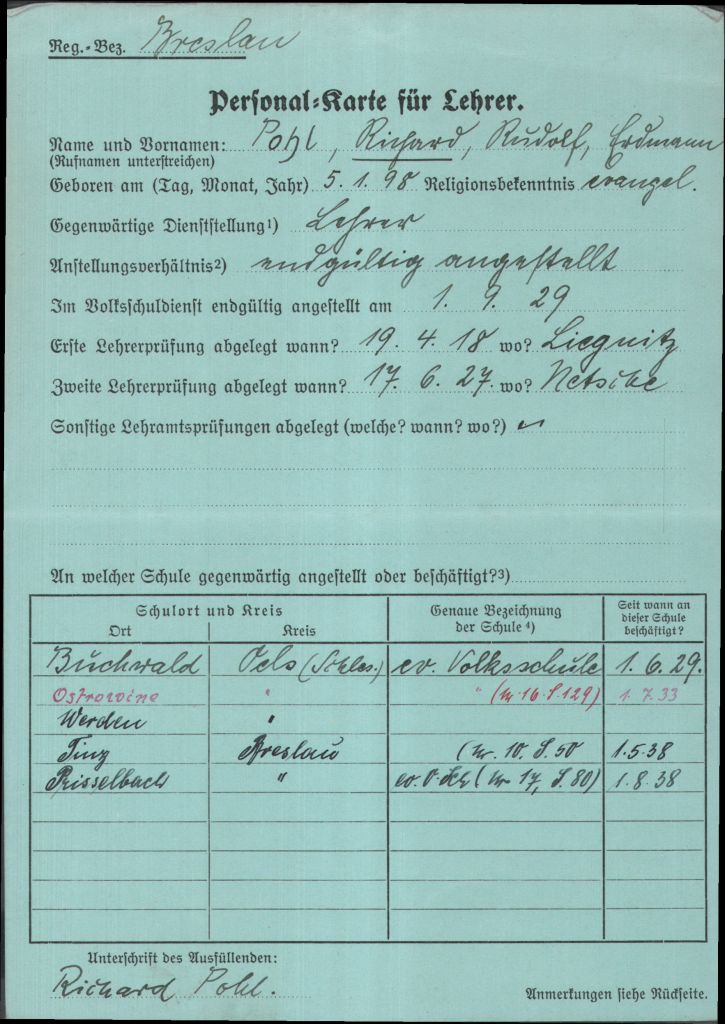 Reg.-Bez. Breslau
Personal-Karte für Lehrer.
Name und Vornamen: Pohl, Richard, Rudolf, Erdmann
(Rufnamen unterstreichen)
Geboren am (Tag, Monat, Jahr) 5. 1. 98 Religionsbekenntnis evangel.
Gegenwärtige Dienststellung1) Lehrer
Anstellungsverhältnis2) endgültig angestellt
Im Volksschuldienst endgültig angestellt am 1. 9. 29
Erste Lehrerprüfung abgelegt wann? 19. 4. 18 wo? Liegnitz
Zweite Lehrerprüfung abgelegt wann? 17. 6. 27. wo?
Sonstige Lehramtsprüfungen abgelegt (welche? wann? wo?)
An welcher Schule gegenwärtig angestellt oder beschäftigt?3)
Schulort und Kreis Genaue Bezeichnung der Schule 4) Seit wann an dieser Schule beschäftigt?
Ort Kreis
Buchwald Oels (Schles.) ev. Volksschule 1. 6. 29.
Ostrowine " " (Nr. 16. S. 129) 1. 7. 33
Werden "
Tinz Breslau (Nr. 10. S. 50 1. 5. 38
Prisselbach " ev. V. Sch (Nr 17, S. 80) 1. 8. 38
Unterschrift des Ausfüllenden:
Richard Pohl.
Anmerkungen siehe Rückseite.